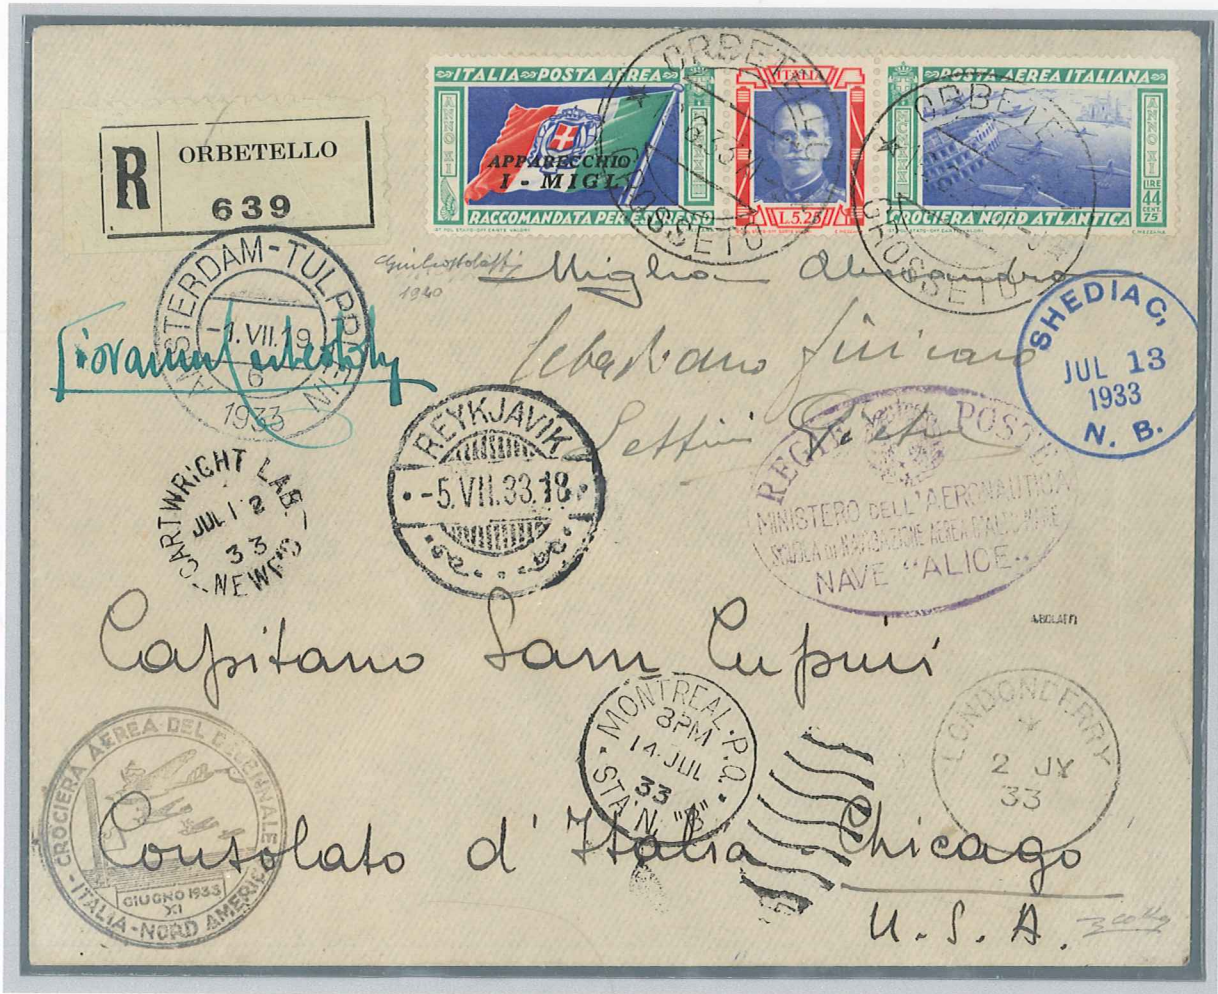 ITALIA POSTA AEREA
ANNO XI
APPARECCHIO
I - MIGL
RACCOMANDATA PER ESPRESSO
ITALIA
L. 5.25
POSTA AEREA ITALIANA
ANNO XI
LIRE 44 CENT. 75
CROCIERA NORD ATLANTICA
ORBETELLO
GROSSETO
ORBETE
GROSSETO
R
ORBETELLO
639
AMSTERDAM-TULPPLEIN
-1.VII.19
6
1933
1940
Miglia Alessandro
Sebastiano
Giovanni
SHEDIAC,
JUL 13
1933
N. B.
REYKJAVIK
-5.VII.33.18
CARTWRIGHT LAB.
JUL 12
33
NEWF'D
REGIE POSTE
MINISTERO DELL'AERONAUTICA
SCUOLA DI NAVIGAZIONE AEREA D'ALTO MARE
NAVE "ALICE"
A.BOLAFFI
Capitano Sam Lupini
MONTREAL. P.Q.
8PM
14 JUL
33
STA'N. "B"
LONDONDERRY
2 JY
33
CROCIERA AEREA DEL DECENNALE
GIUGNO 1933
XI
ITALIA-NORD AMERICA
Consolato d'Italia - Chicago
U. S. A.